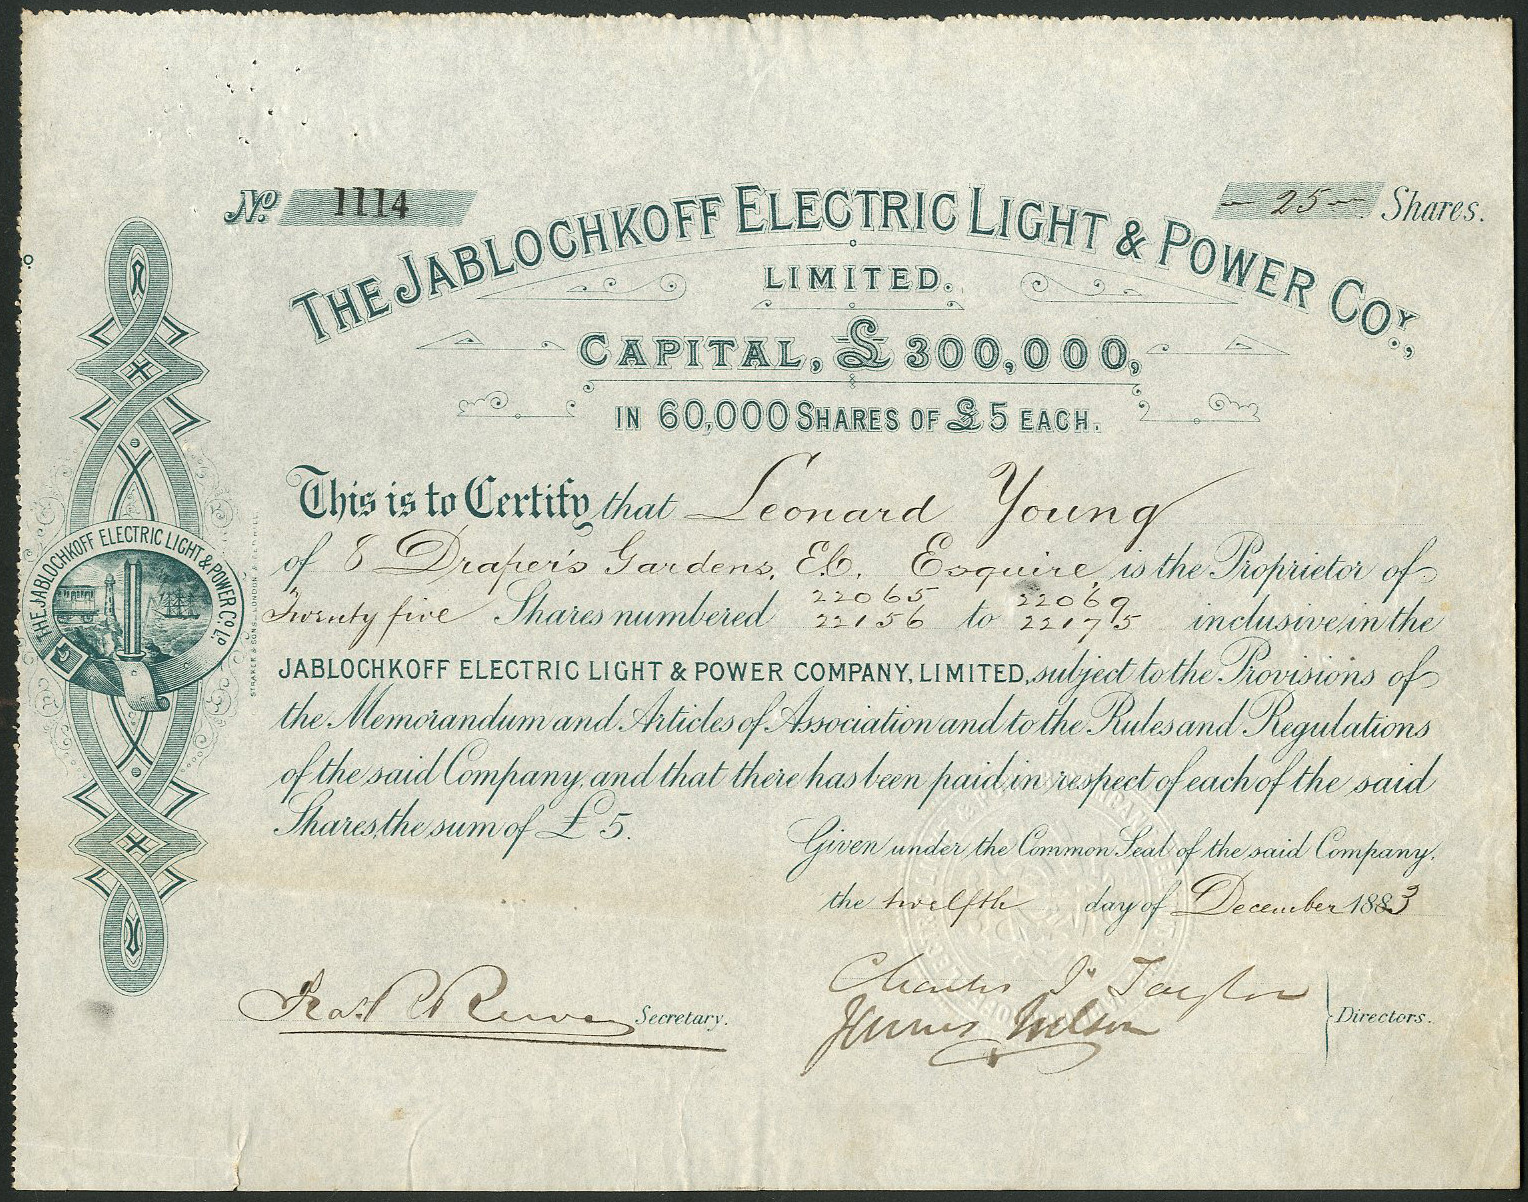 No. 1114
25 Shares.
THE JABLOCHKOFF ELECTRIC LIGHT & POWER COY.,
LIMITED.
CAPITAL, £300,000,
IN 60,000 SHARES OF £5 EACH.
This is to Certify that Leonard Young
of 8 Draper's Gardens, E.C. Esquire, is the Proprietor of
Twenty five Shares numbered 22065 to 22069 inclusive, in the
22156 22175
JABLOCHKOFF ELECTRIC LIGHT & POWER COMPANY, LIMITED, subject to the Provisions of
the Memorandum and Articles of Association and to the Rules and Regulations
of the said Company, and that there has been paid, in respect of each of the said
Shares, the sum of £5.
Given under the Common Seal of the said Company,
the twelfth day of December 1883
Secretary.
Charles J Taylor
James Wilson
Directors.
THE JABLOCHKOFF ELECTRIC LIGHT & POWER Co. Ld.
STRAKER & SONS, LONDON